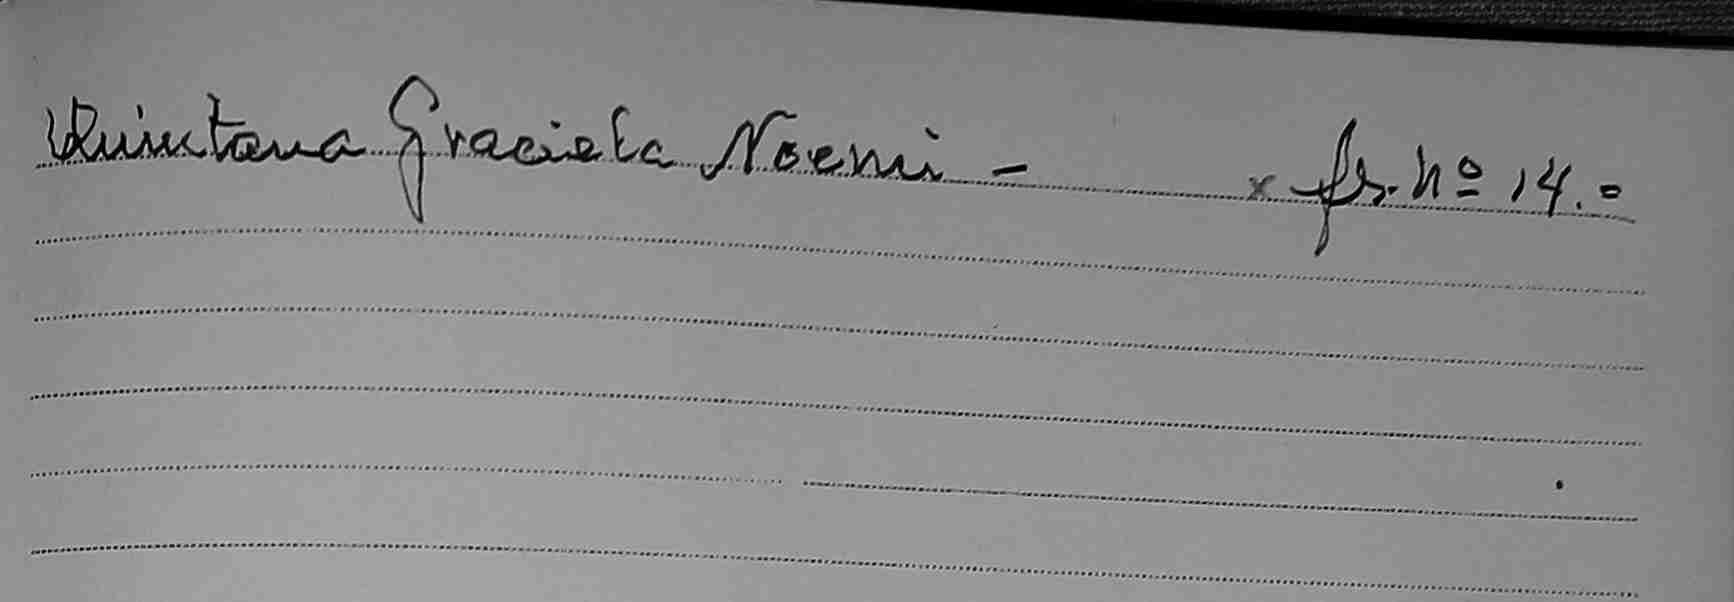 Quintana Graciela Noemi - x fs. nº 14.=